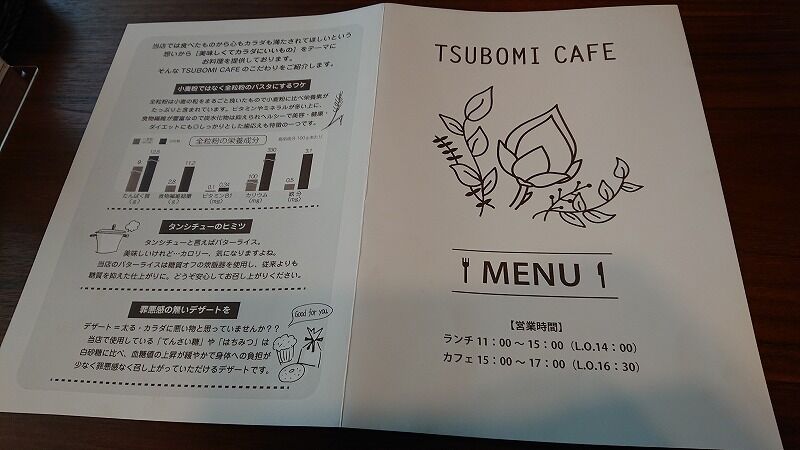 当店では食べたものから心もカラダも満たされてほしいという
想いから［美味しくてカラダにいいもの］をテーマに
お料理を提供しております。
そんな TSUBOMI CAFE のこだわりをご紹介します。
小麦粉ではなく全粒粉のパスタにするワケ
全粒粉は小麦の粒をまるごと挽いたもので小麦粉に比べ栄養素が
たっぷりと含まれています。ビタミンやミネラルが多い上に、
食物繊維が豊富なので炭水化物は抑えられヘルシーで美容・健康・
ダイエットにも◎しっかりとした歯応えも特徴の一つです。
全粒粉の栄養成分
9 12.8
2.8 11.2
0.1 0.34
100 330
0.5 3.1
たんぱく質 食物繊維総量 ビタミンB1 カリウム 鉄分
(g) (g) (mg) (mg) (mg)
タンシチューのヒミツ
タンシチューと言えばバターライス。
美味しいけれど…カロリー、気になりますよね。
当店のバターライスは糖質オフの炊飯器を使用し、従来よりも
糖質を抑えた仕上がりに。どうぞ安心してお召し上がりください。
罪悪感の無いデザートを
Good for you
デザート＝太る・カラダに悪い物と思っていませんか？？
当店で使用している「てんさい糖」や「はちみつ」は
白砂糖に比べ、血糖値の上昇が緩やかで身体への負担が
少なく罪悪感なく召し上がっていただけるデザートです。
TSUBOMI CAFE
MENU
【営業時間】
ランチ 11：00 〜 15：00（L.O.14：00）
カフェ 15：00 〜 17：00（L.O.16：30）